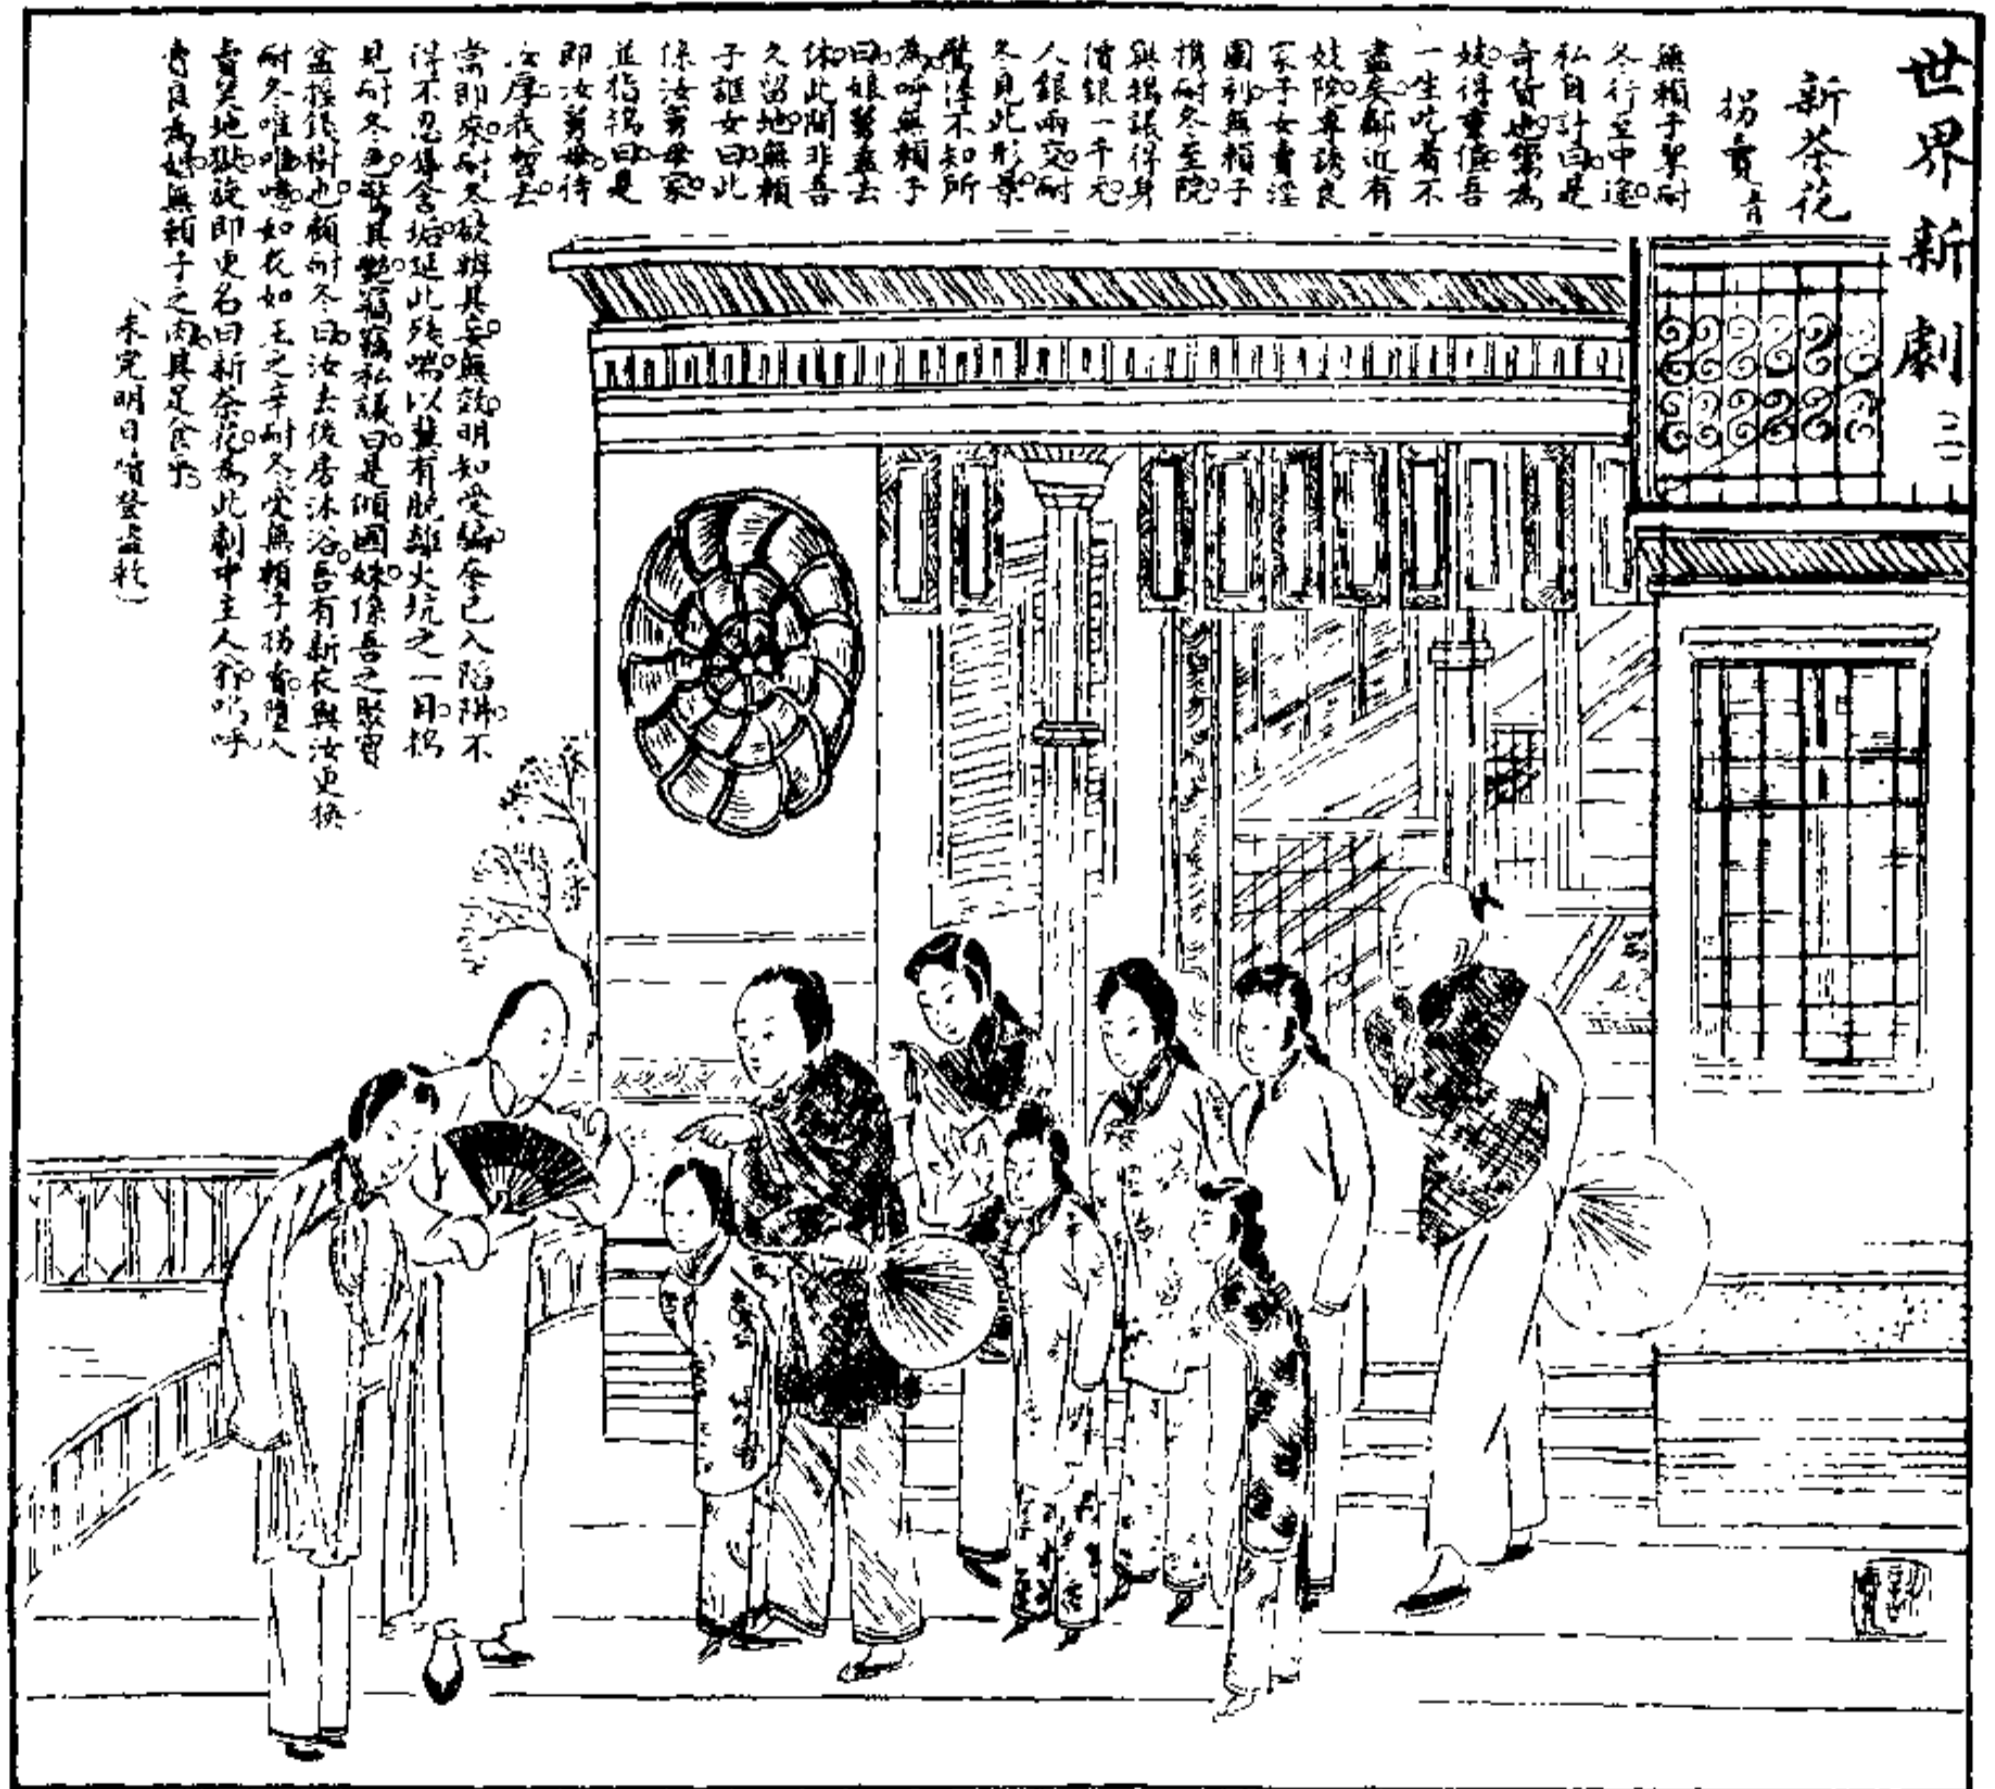 世界新劇(二)
新茶花
拐賣
無賴子挈耐
冬行至中途
私自計曰是
奇貨也鬻為
妓得重值吾
一生吃着不
盡矣鄰近有
妓院專誘良
家子女賣淫
圖利無賴子
携耐冬至院
與鴇議得身
價銀一千元
人銀兩交耐
冬見此形景
驚惶不知所
為呼無賴子
曰娘舅盍去
休此間非吾
久留地無賴
子誑女曰此
係汝舅母家
並指鴇曰是
即汝舅母待
汝厚我暫去
當即來耐冬欲辨其妄無效明知受騙奈已入陷阱不
得不忍辱含垢延此殘喘以冀有脫離火坑之一日鴇
見耐冬色驚其艷竊竊私議曰是傾國姝係吾之聚寶
盆搖錢樹也顧耐冬曰汝去後房沐浴吾有新衣與汝更換
耐冬唯唯噫如花如玉之辛耐冬受無賴子拐賣墮入
青泥地獄旋即更名曰新茶花為此劇中主人翁嗚呼
賣良為娼無賴子之肉其足食乎
(未完明日續登孟乾)